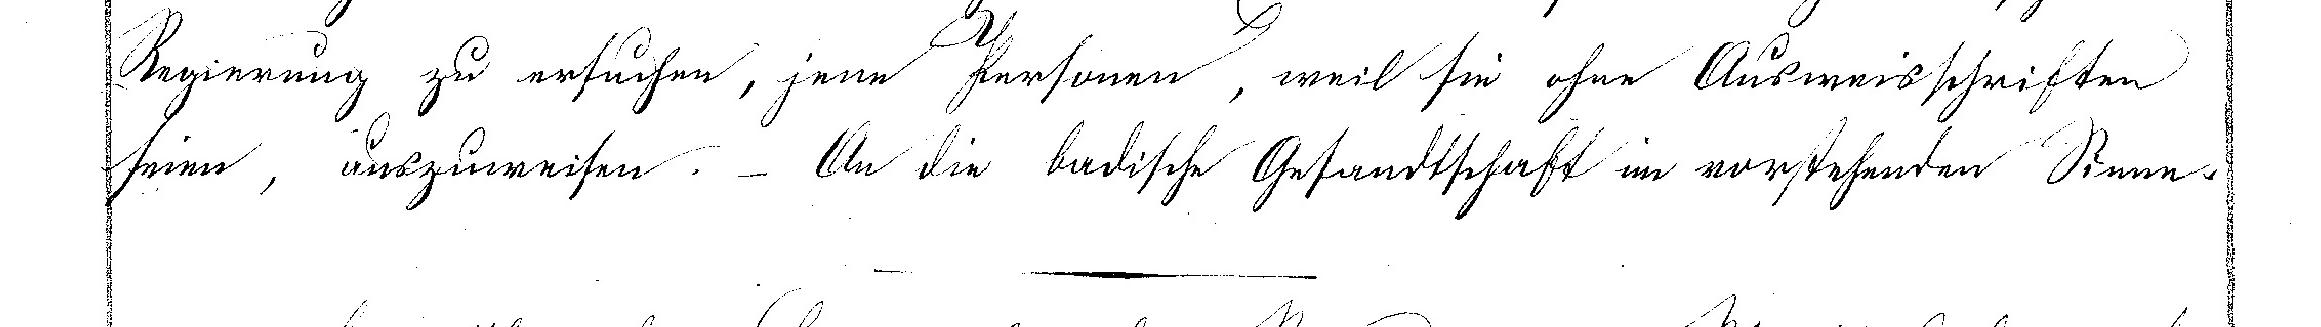 Regierung zu ersuchen, jene Personen, weil sie ohne Ausweisschriften
seien, auszuweisen. – An die badische Gesandtschaft im vorstehenden Sinne.